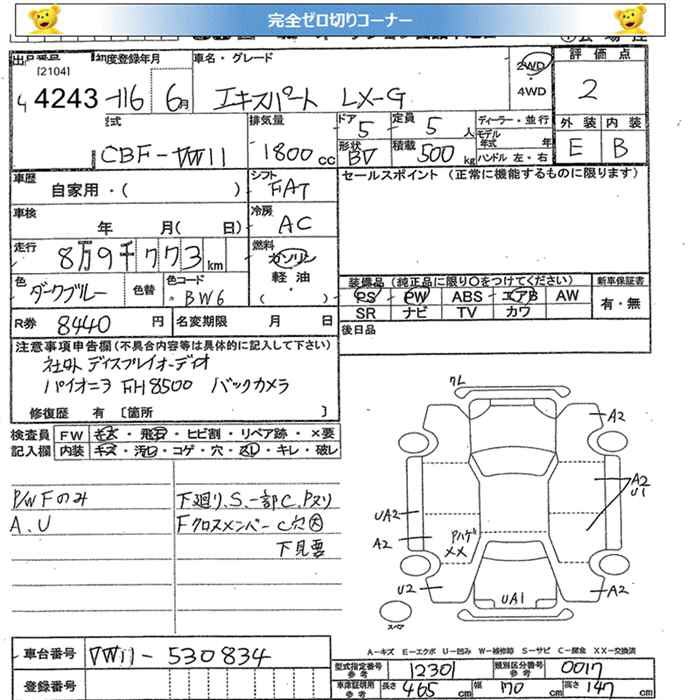 完全ゼロ切りコーナー
[2104]
初度登録年月
車名・グレード
2WD
・
4WD
評価点
4243
H16
6月
エキスパート LX-G
2
型式
CBF-VW11
排気量
1800cc
ドア
5
定員
5人
形状
BV
積載
500kg
ディーラー・並行
モデル年式 年
ハンドル 左・右
外装
内装
E
B
車歴
自家用・( )
シフト
FAT
セールスポイント (正常に機能するものに限ります)
車検
年 月( 日)
冷房
AC
走行
8万9千773km
燃料
ガソリン
軽油
( ・ )
色
ダークブルー
色替
色コード
BW6
装備品(純正品に限り〇をつけてください)
新車保証書
PS
PW
ABS
エアB
AW
有・無
SR
ナビ
TV
カワ
R券
8440円
名変期限 月 日
後日品
注意事項申告欄(不具合内容等は具体的に記入して下さい)
社外ディスプレイオーディオ
パイオニア FH8500 バックカメラ
修復歴 有 〔箇所 〕
検査員
記入欄
FW
キズ・飛石・ヒビ割・リペア跡・×要
内装
キズ・汚れ・コゲ・穴・スレ・キレ・破レ
P/WFのみ
A.U
下廻り、S.一部C、Pヌリ
FクロスメンバーC穴大
下見要
クレ
A2
A2
U1
UA2
A2
Pハゲ
XX
U2
UA1
A2
スペア
A-キズ E-エクボ U-凹み W-補修跡 S-サビ C-腐食 XX-交換済
車台番号
VW11-530834
登録番号
型式指定番号
参考
12301
類別区分番号
参考
0017
車庫証明用
参考
長さ 465cm
幅 170cm
高さ 147cm